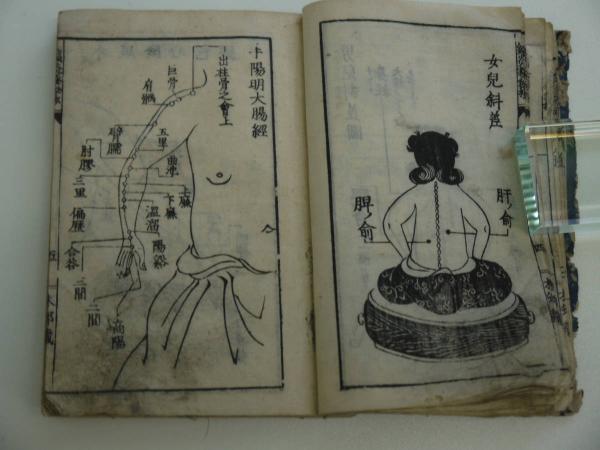 女兒斜差
肝ノ俞
脾ノ俞
手陽明大腸經
出柱骨之會上
巨骨
肩髃
五里
臂臑
曲池
肘髎
三里
上廉
下廉
偏歷
溫溜
陽谿
合谷
三間
二間
商陽